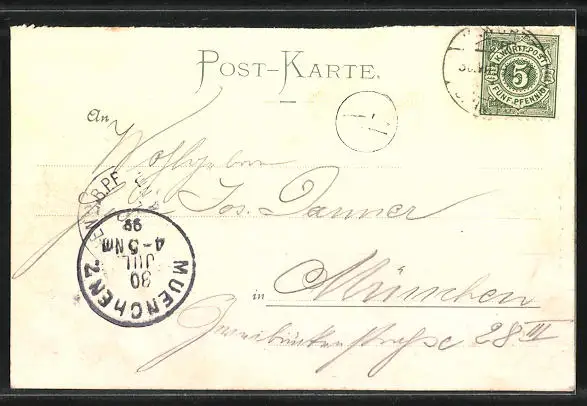 POST-KARTE.
K. WÜRTT. POST
5
FÜNF PFENNIG
An
Wohlgeboren
Jos. Danner
in München
Zweibrückenstraße 28 III
MUENCHEN 2.
30
JUL
4-5 NM
99
B.PF